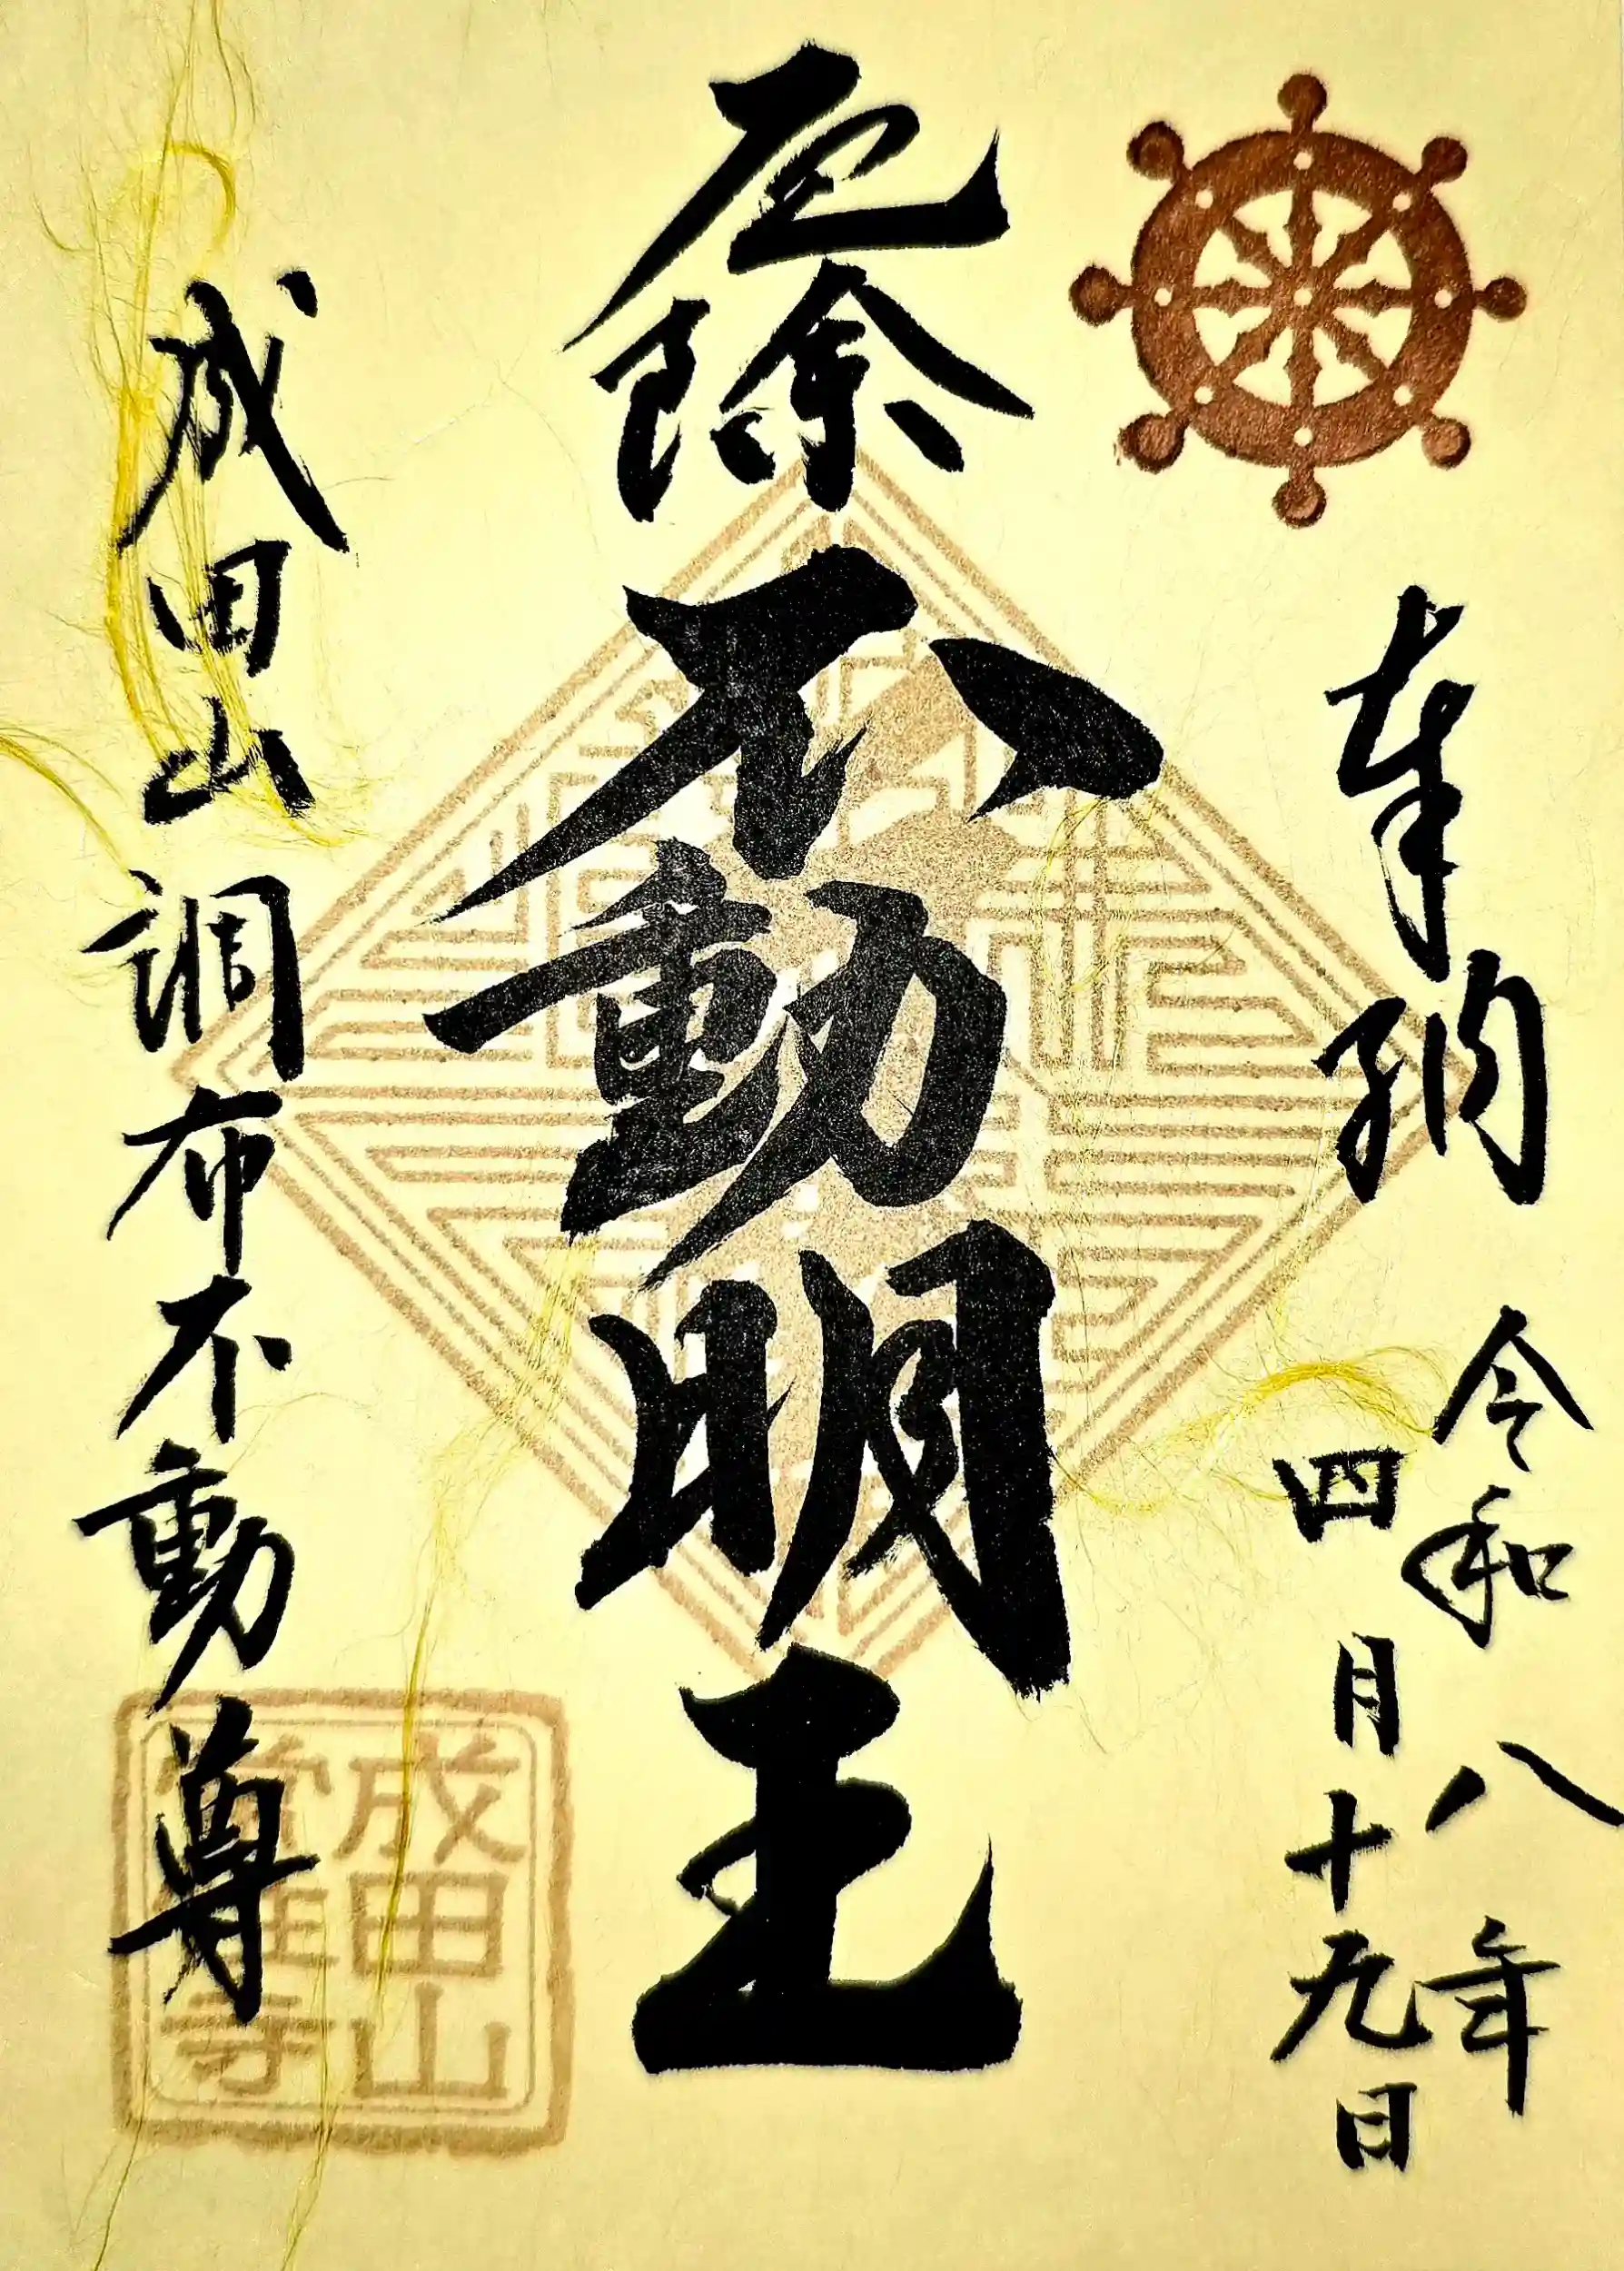 奉納
令和八年
四月十九日
厄除不動明王
成田山調布不動尊
成田山
常性寺